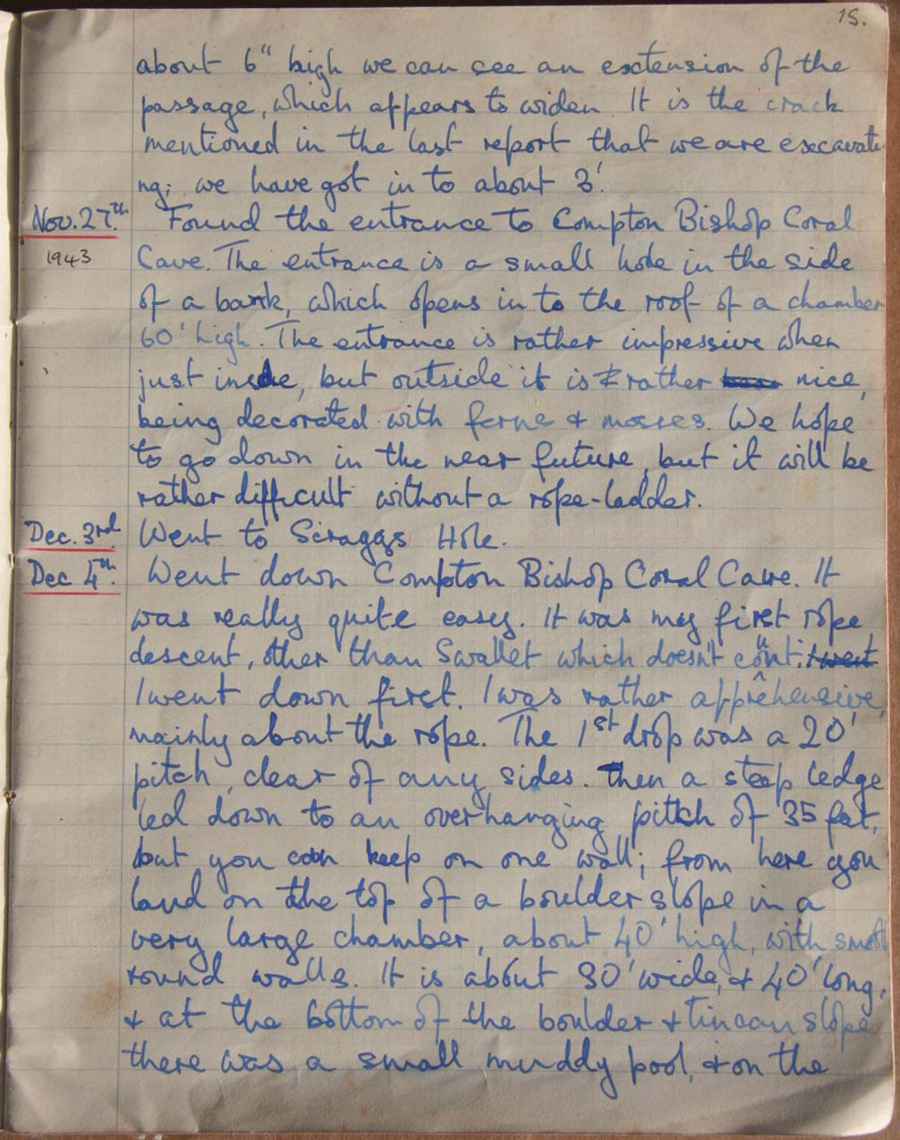 15.
about 6" high we can see an extension of the
passage, which appears to widen. It is the crack
mentioned in the last report that we are excavati-
ng; we have got in to about 3'.
Nov. 27th. Found the entrance to Compton Bishop Coral
1943 Cave. The entrance is a small hole in the side
of a bank, which opens in to the roof of a chamber
60' high. The entrance is rather impressive when
just inside, but outside it is rather nice,
being decorated with ferns & mosses. We hope
to go down in the near future, but it will be
rather difficult without a rope-ladder.
Dec. 3rd. Went to Scraggs Hole.
Dec 4th. Went down Compton Bishop Coral Cave. It
was really quite easy. It was my first rope
descent, other than Swallet which doesn't count.
I went down first. I was rather apprêhensive,
mainly about the rope. The 1st drop was a 20'
pitch, clear of any sides. Then a steep ledge
led down to an overhanging pitch of 35 feet,
but you can keep on one wall; from here you
land on the top of a boulder slope in a
very large chamber, about 40' high, with smooth
round walls. It is about 30' wide, & 40' long,
& at the bottom of the boulder & tincan slope
there was a small muddy pool, & on the